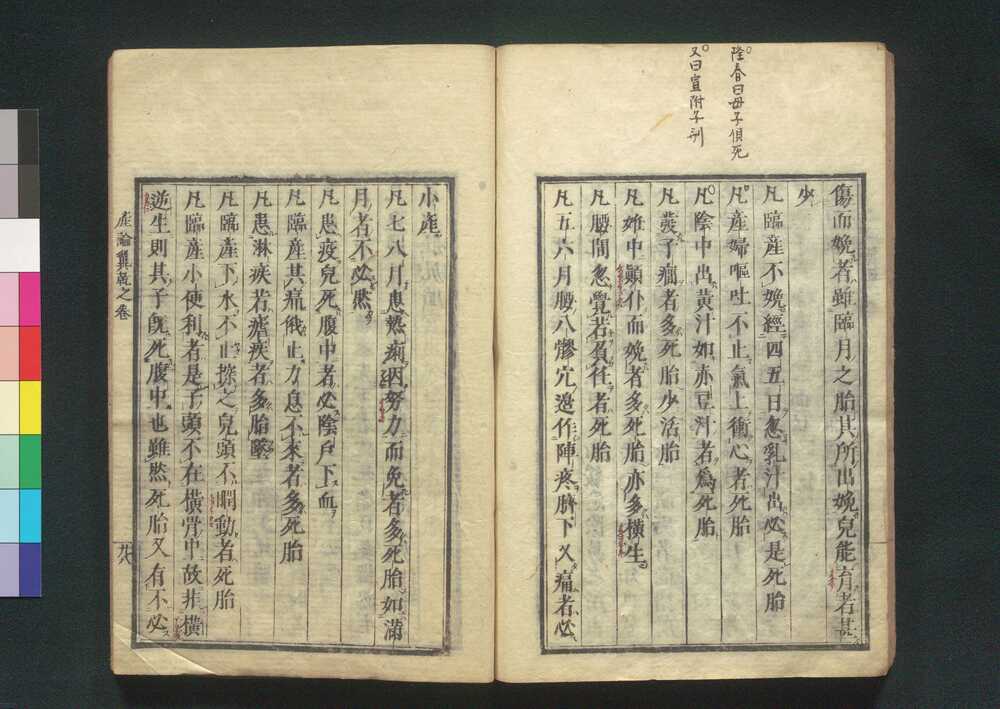 隆春曰母子倶死
又曰宣附子剤
傷而娩者雖臨月之胎其所出娩兒能育者甚
少
凡臨産不娩經四五日忽乳汁出必是死胎
凡産婦嘔吐不止氣上衝心者死胎
凡陰中出黄汁如赤豆汁者爲死胎
凡發子癇者多死胎少活胎
凡娠中顚仆而娩者多死胎亦多横生
凡腰間忽覺若負任者死胎
凡五六月腰八髎穴邉作陣疼臍下又痛者必
小産
凡七八月患熱病因努力而免者多死胎如滿
月者不必然
凡患疫兒死腹中者必陰戸下血
凡臨産其痛俄止力息不來者多死胎
凡患淋疾若瘧疾者多胎墜
凡臨産下水不止探之兒頭不瞤動者死胎
凡臨産小便利者是子頭不在横骨中故非横
逆生則其子既死腹中也雖然死胎又有不必
産論翼乾之卷
廿八